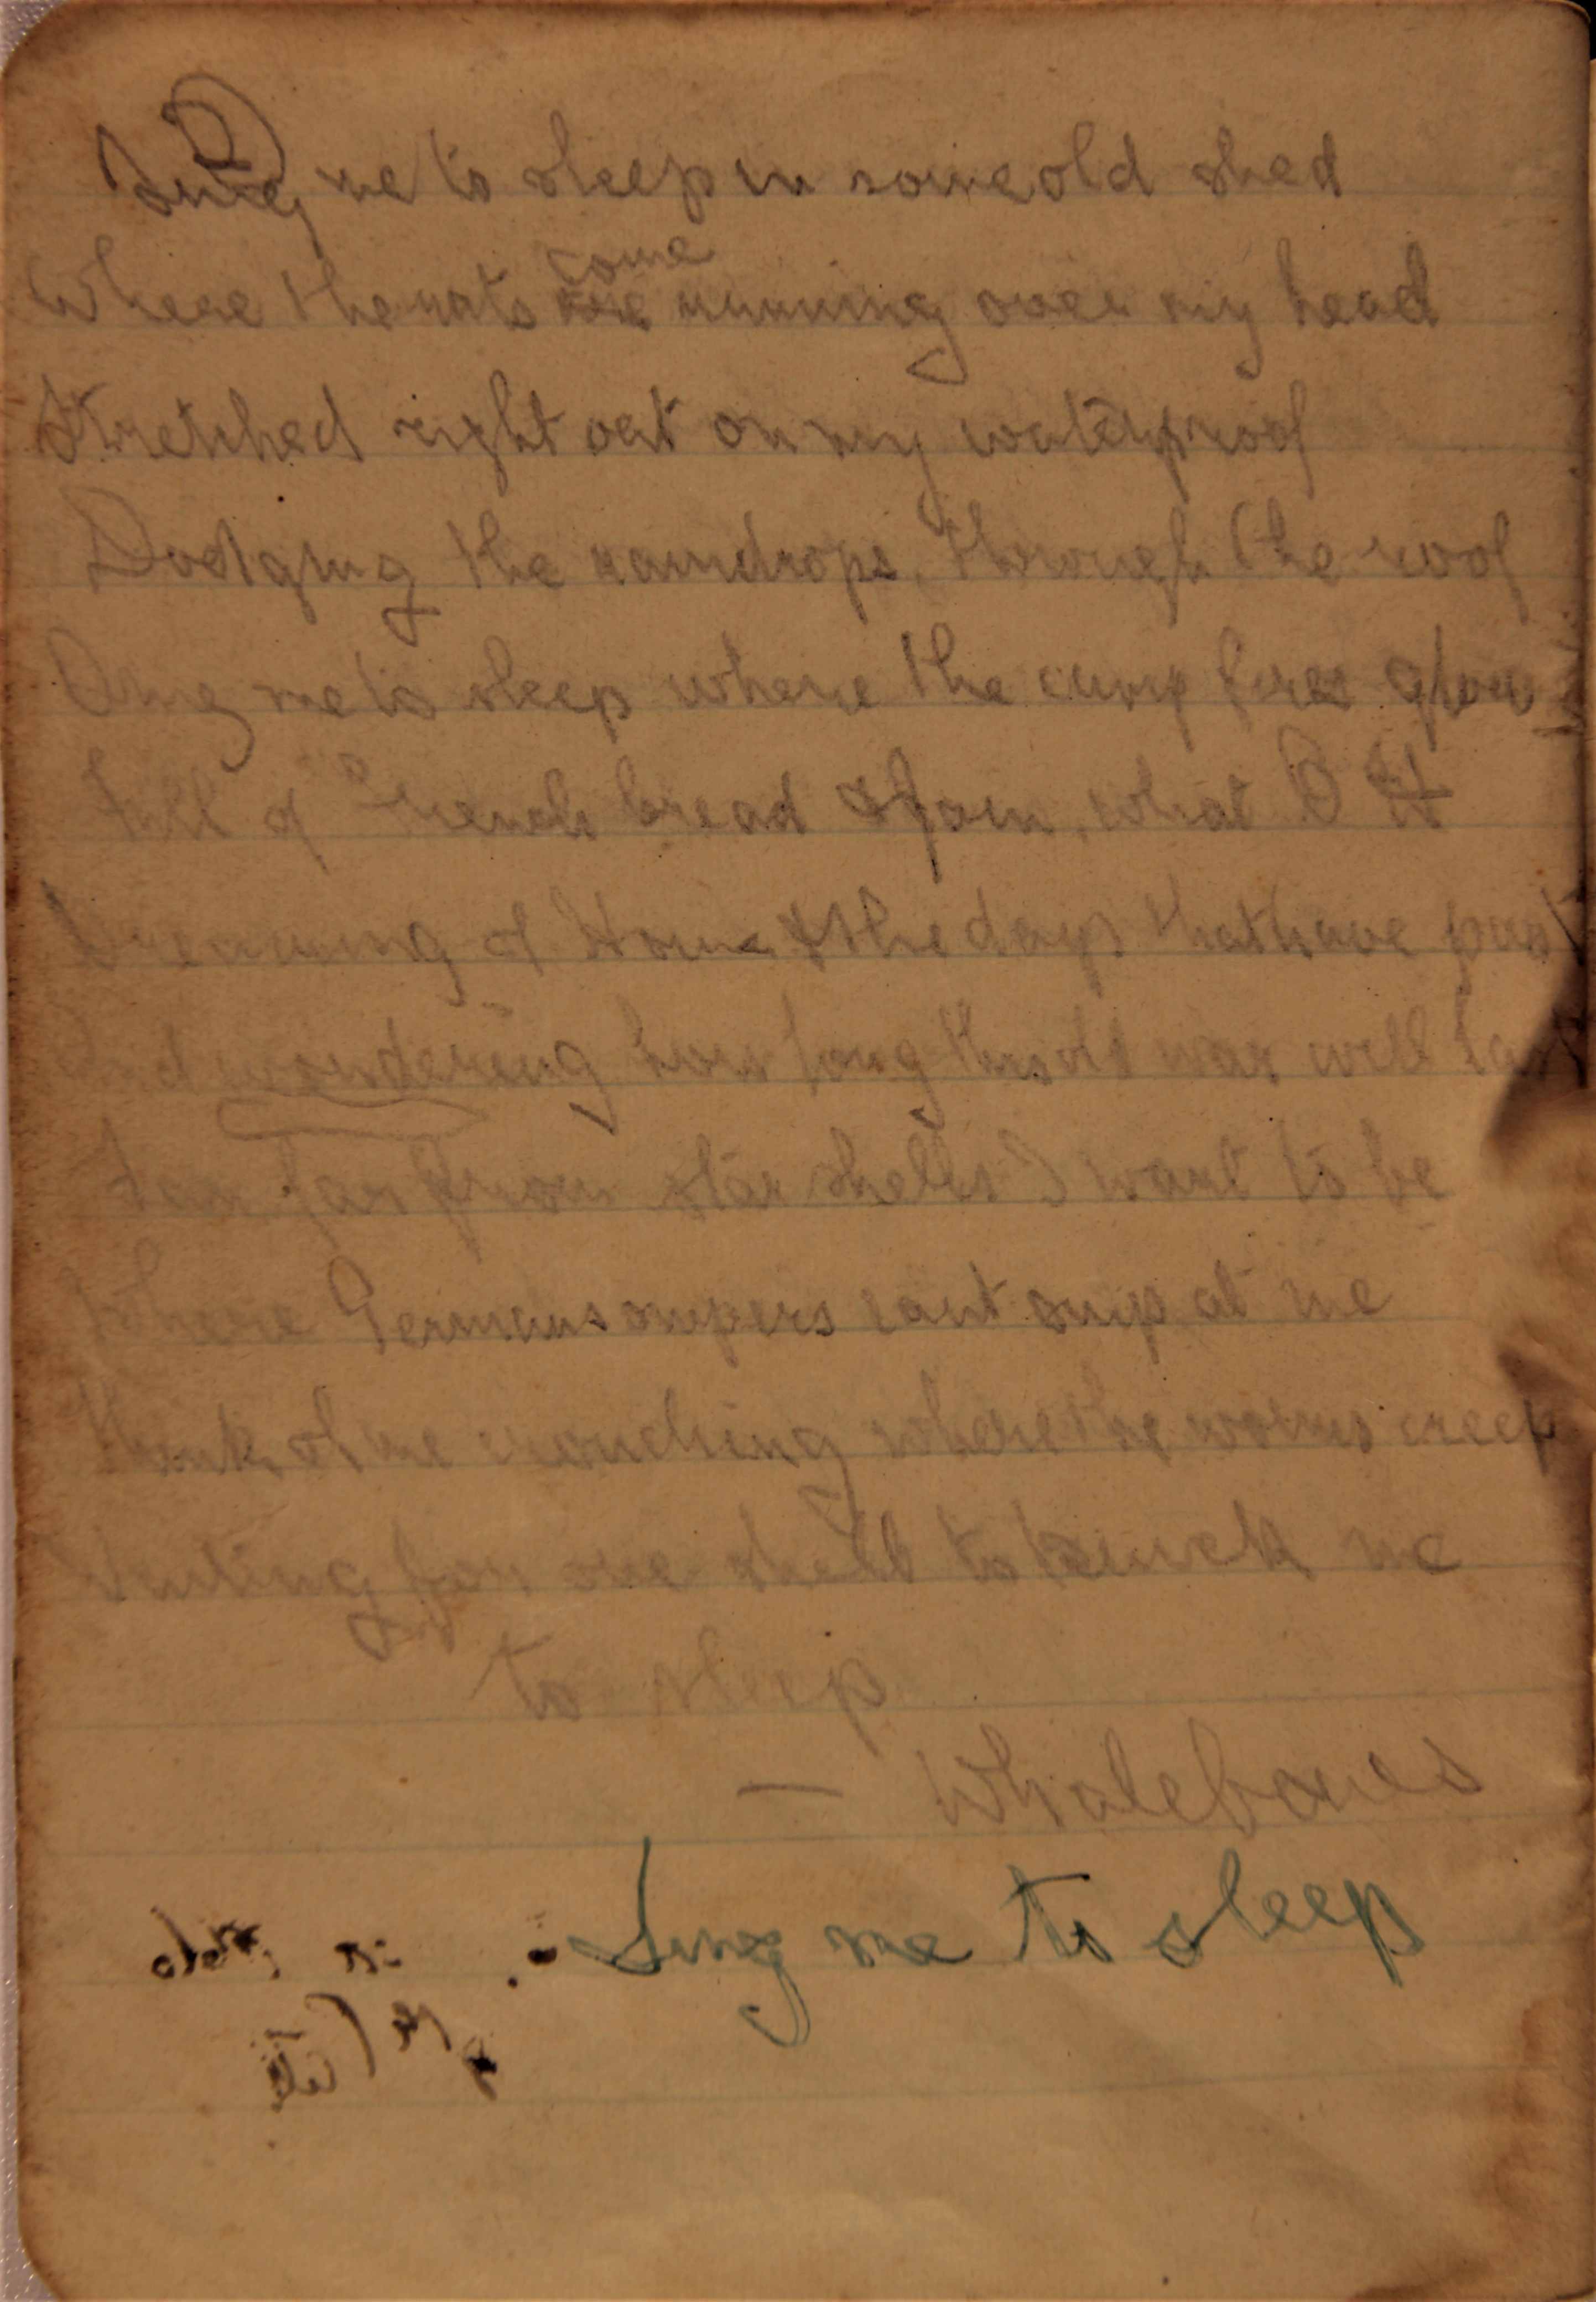 Sing me to sleep in some old shed
Where the rats come running over my head
Stretched right out on my waterproof
Dodging the raindrops, through the roof
Sing me to sleep where the camp fires glow
Full of French bread & Jam, what O H
Dreaming of Home & the days that have past
And wondering how long this old war will last
Far far from star shells I want to be
Where Germans snipers cant snip at me
Think of me crouching where the worms creep
Waiting for one shell to knock me
to sleep
— Whalebones
Sing me to sleep